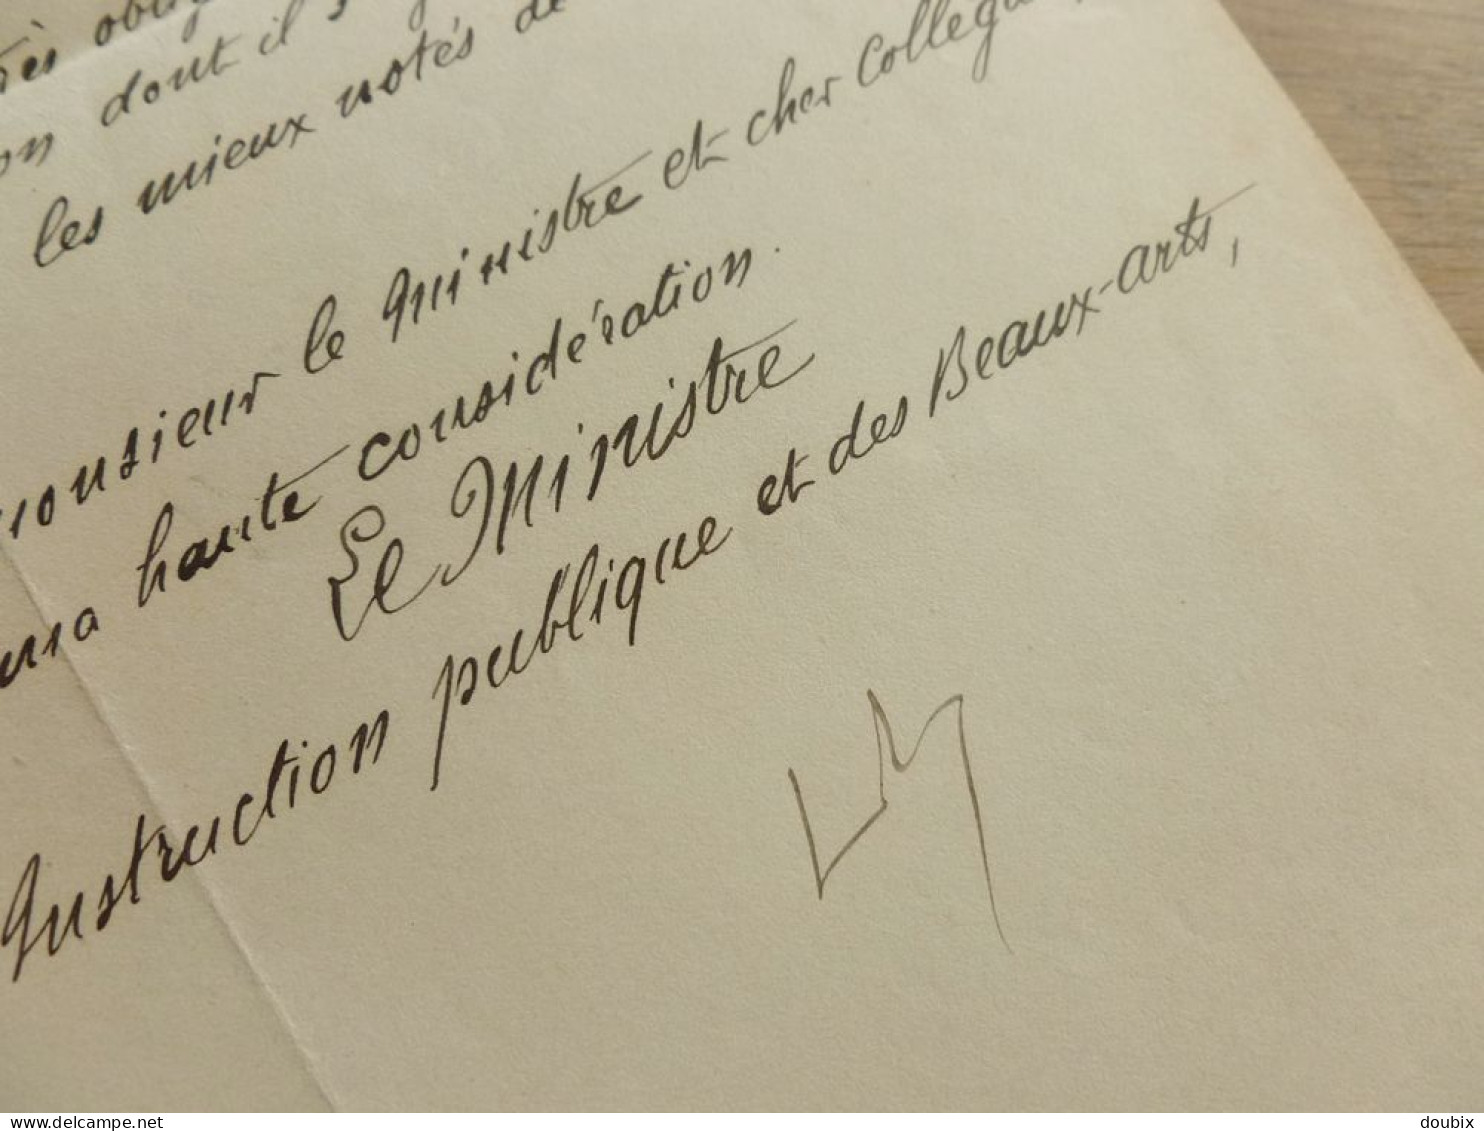 dont il
les mieux notés de
Monsieur le Ministre et cher Collègue,
ma haute considération.
Le Ministre
Instruction publique et des Beaux-arts,
doubix